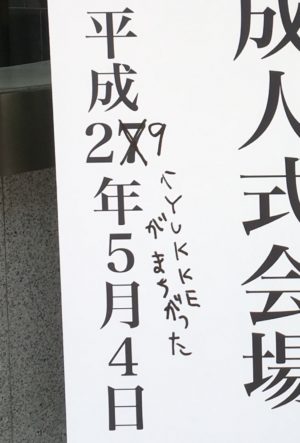 成人式会場
平成279年5月4日
↑YUKKE
がまちがった